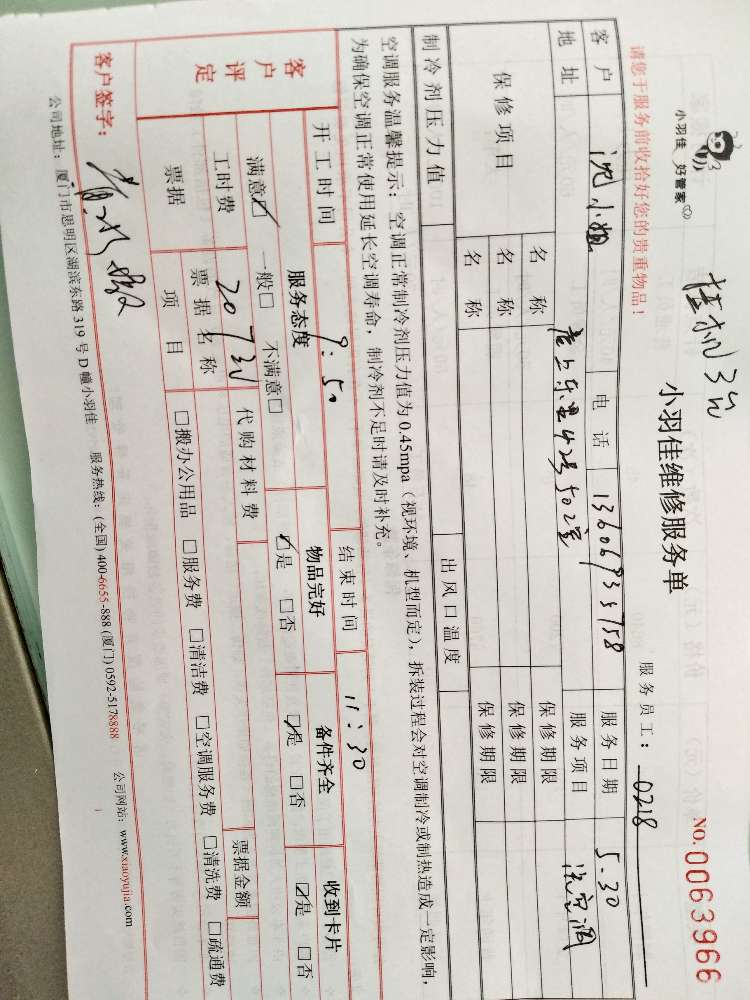 小羽佳 好管家
挂机3台
小羽佳维修服务单
NO.0063966
请您于服务前收拾好您的贵重物品！
服务员工： 0218
客户 沈小姐 电话 13606935758 服务日期 5.30
地址 42号502室 服务项目 洗空调
保修项目 名称 保修期限
名称 保修期限
名称 保修期限
制冷剂压力值 出风口温度
空调服务温馨提示：空调正常制冷剂压力值为0.45mpa（视环境、机型而定），拆装过程会对空调制冷或制热造成一定影响，
为确保空调正常使用延长空调寿命，制冷剂不足时请及时补充。
开工时间 9:50 结束时间 11:30
客户评定 服务态度 物品完好 备件齐全 收到卡片
满意☑ 一般□ 不满意□ ☑是 □否 ☑是 □否 ☑是 □否
工时费 207元 代购材料费
票据 票据名称 票据金额
项目 □搬办公用品 □服务费 □清洁费 □空调服务费 □清洗费 □疏通费
客户签字：
公司地址：厦门市思明区湖滨东路319号D幢小羽佳 服务热线：(全国)400-6655-888 (厦门)0592-5178888 公司网站：www.xiaoyujia.com